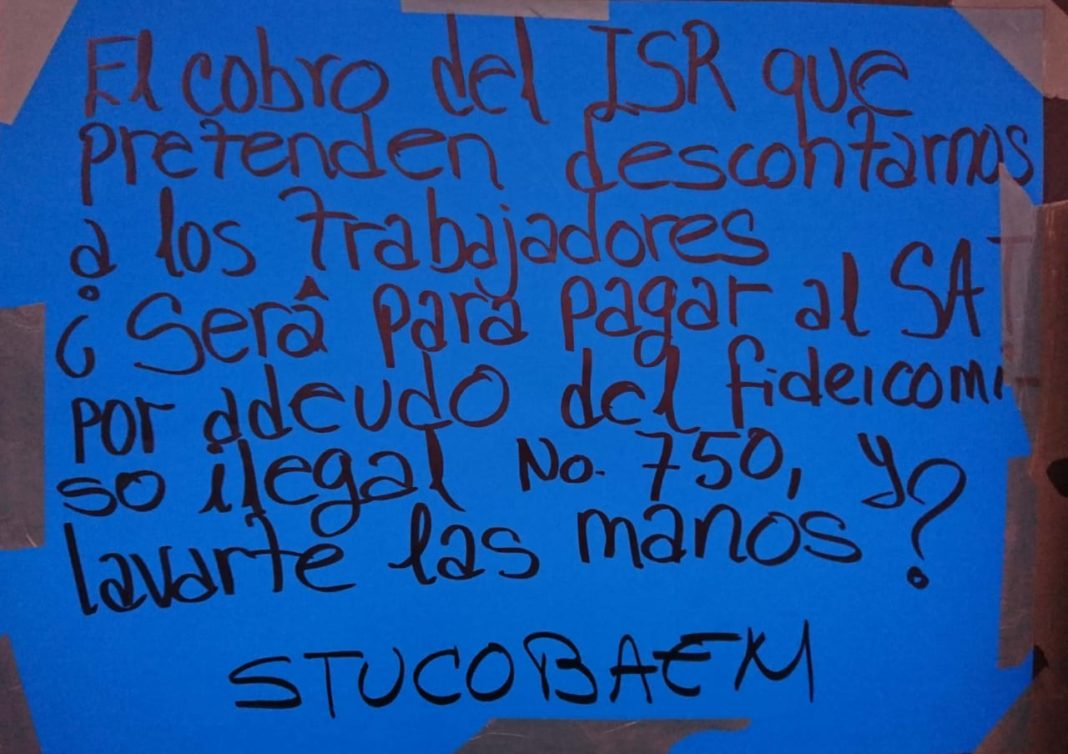 El cobro del ISR que
pretenden descontarnos
a los trabajadores
¿Será para pagar al SAT
por adeudo del fideicomi
so ilegal No. 750, y
lavarte las manos?
STUCOBAEM